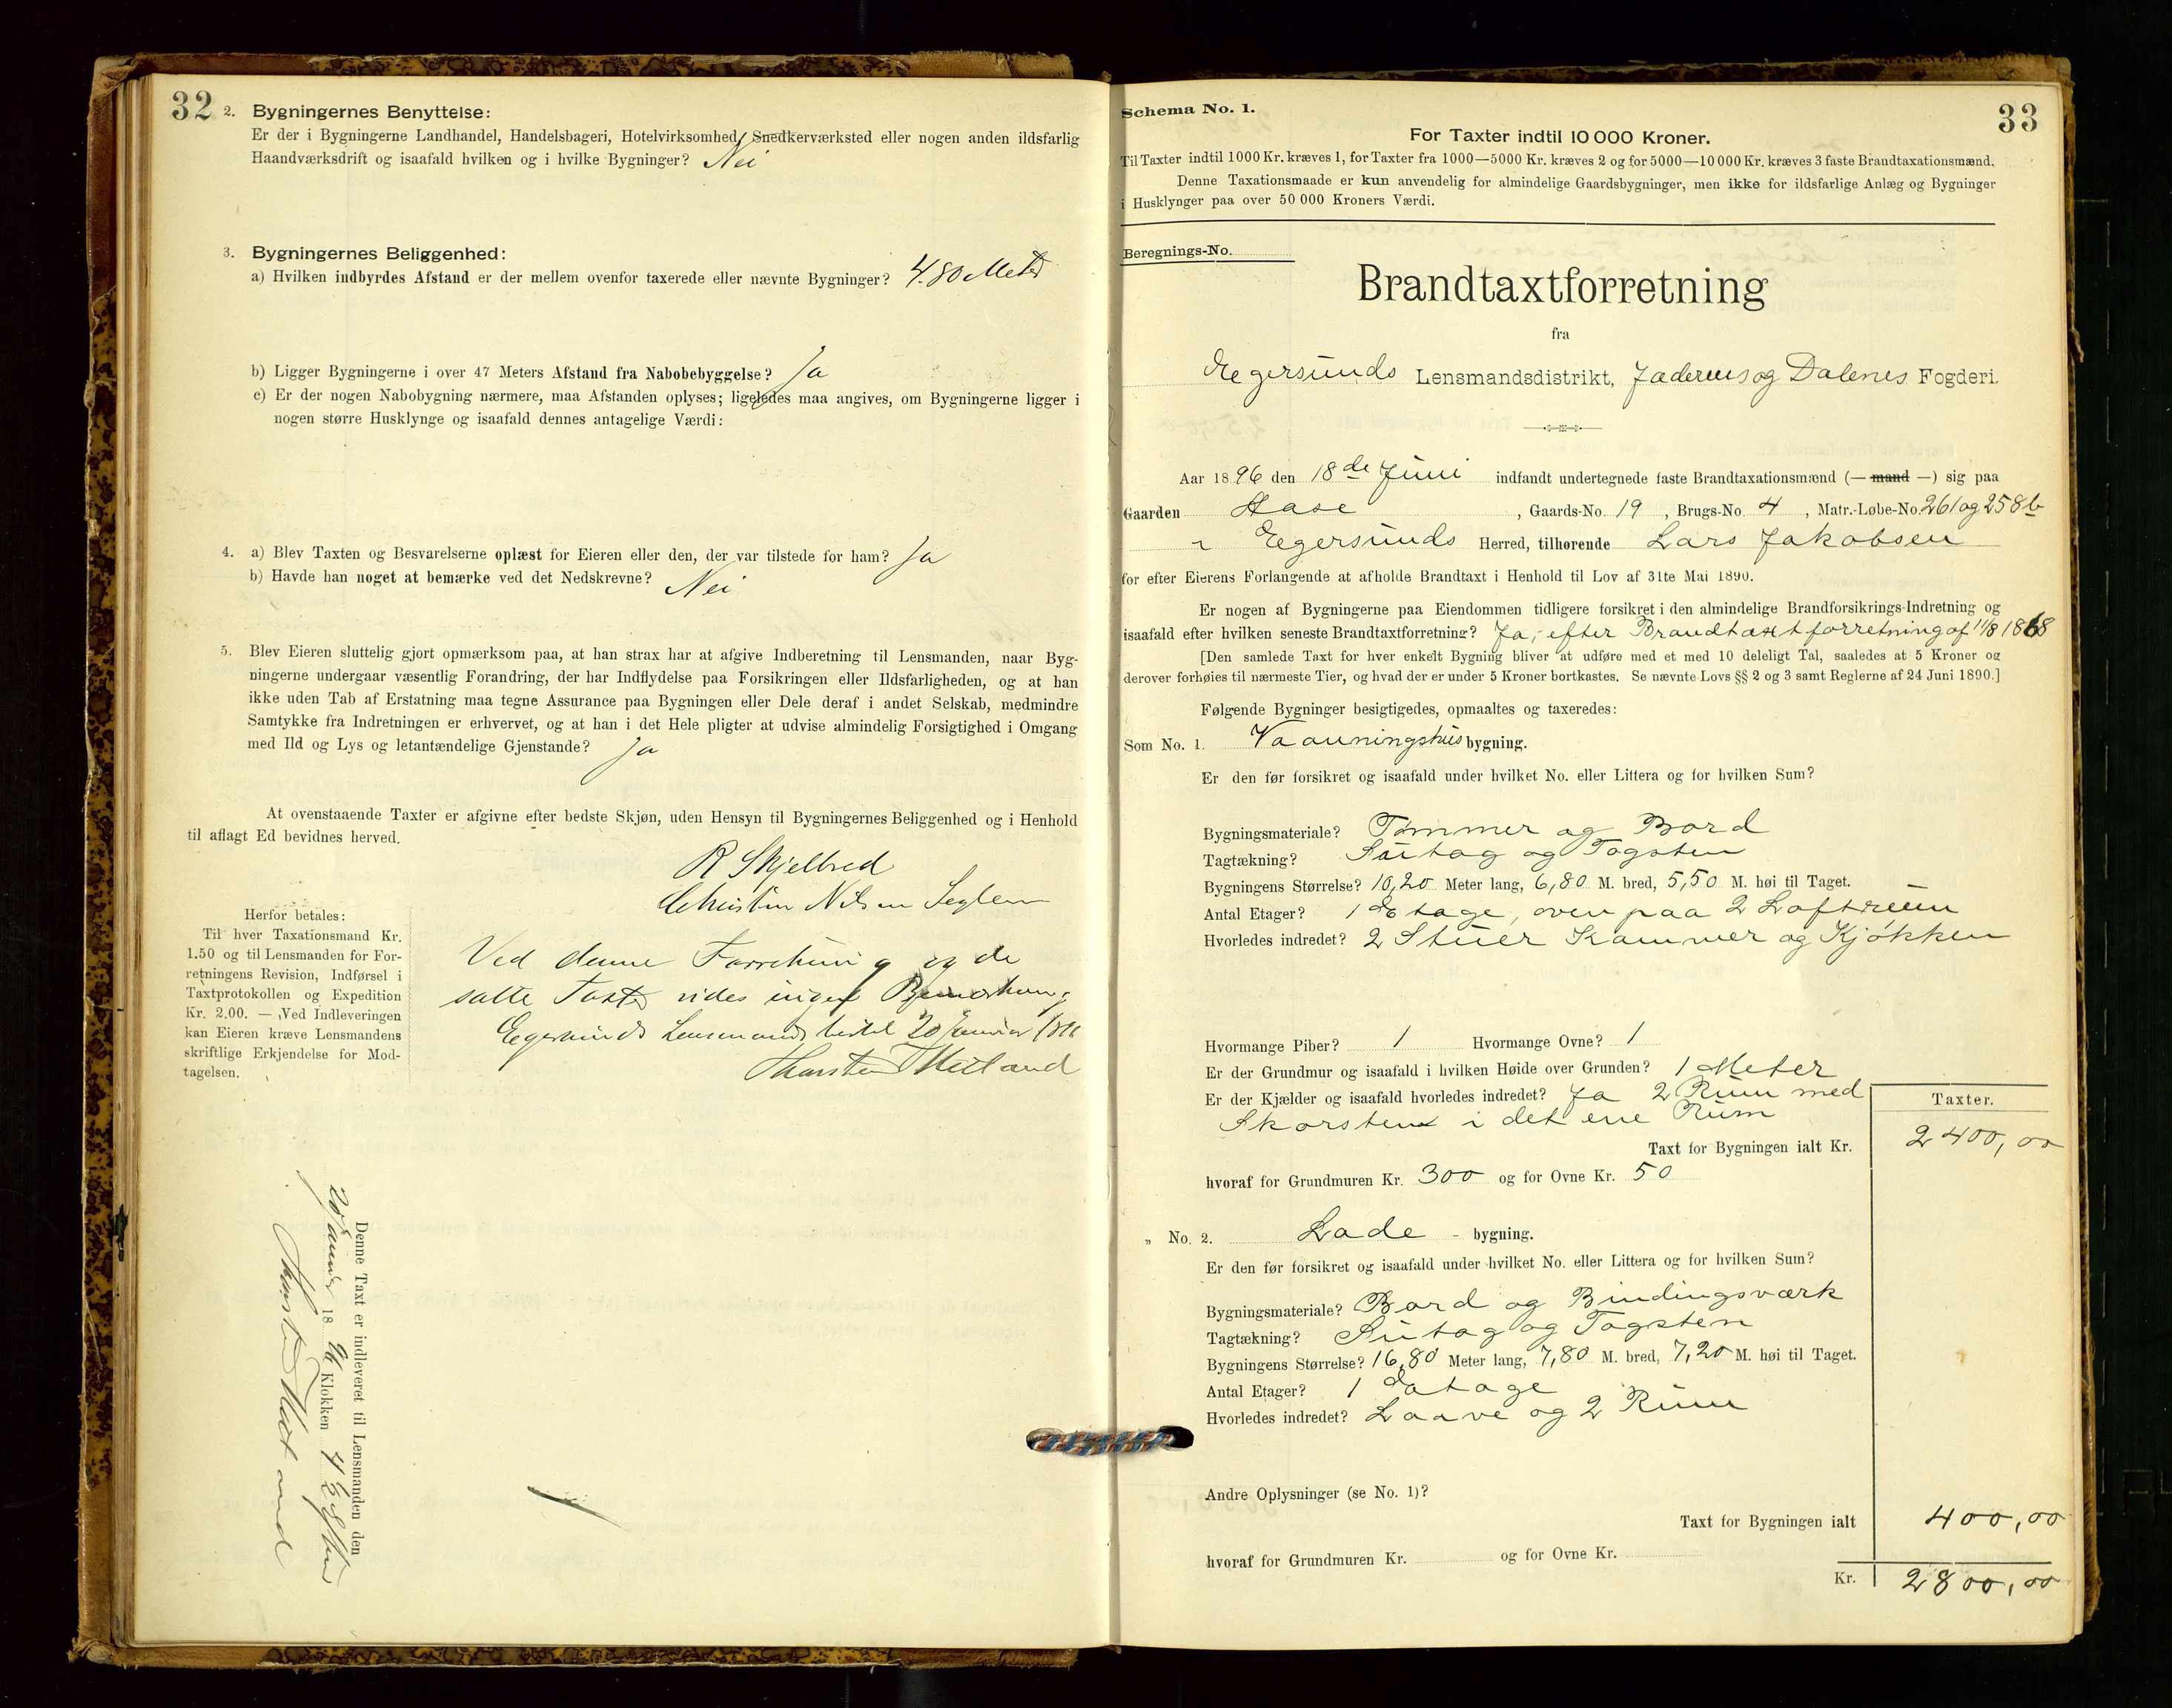 32
2. Bygningernes Benyttelse:
Er der i Bygningerne Landhandel, Handelsbageri, Hotelvirksomhed, Snedkerværksted eller nogen anden ildsfarlig
Haandværksdrift og isaafald hvilken og i hvilke Bygninger? Nei
3. Bygningernes Beliggenhed:
a) Hvilken indbyrdes Afstand er der mellem ovenfor taxerede eller nævnte Bygninger? 4.80 Meter
b) Ligger Bygningerne i over 47 Meters Afstand fra Nabobebyggelse? Ja
c) Er der nogen Nabobygning nærmere, maa Afstanden oplyses; ligeledes maa angives, om Bygningerne ligger i
nogen større Husklynge og isaafald dennes antagelige Værdi:
4. a) Blev Taxten og Besvarelserne oplæst for Eieren eller den, der var tilstede for ham? Ja
b) Havde han noget at bemærke ved det Nedskrevne? Nei
5. Blev Eieren sluttelig gjort opmærksom paa, at han strax har at afgive Indberetning til Lensmanden, naar Byg-
ningerne undergaar væsentlig Forandring, der har Indflydelse paa Forsikringen eller Ildsfarligheden, og at han
ikke uden Tab af Erstatning maa tegne Assurance paa Bygningen eller Dele deraf i andet Selskab, medmindre
Samtykke fra Indretningen er erhvervet, og at han i det Hele pligter at udvise almindelig Forsigtighed i Omgang
med Ild og Lys og letantændelige Gjenstande? Ja
At ovenstaaende Taxter er afgivne efter bedste Skjøn, uden Hensyn til Bygningernes Beliggenhed og i Henhold
til aflagt Ed bevidnes herved.
R Skjelbred
Christen Nilsen Seglem
Herfor betales:
Til hver Taxationsmand Kr.
1.50 og til Lensmanden for For-
retningens Revision, Indførsel i
Taxtprotokollen og Expedition
Kr. 2.00. — Ved Indleveringen
kan Eieren kræve Lensmandens
skriftlige Erkjendelse for Mod-
tagelsen.
Ved denne Forretning og de
satte Taxter vides ingen Bemerkning
Egersunds Lensmandsbestil 20
Thorsten
Denne Taxt er indleveret til Lensmanden den
20 18 96 Klokken 4 Efter
Thorsten
Schema No. 1.
33
For Taxter indtil 10 000 Kroner.
Til Taxter indtil 1000 Kr. kræves 1, for Taxter fra 1000—5000 Kr. kræves 2 og for 5000—10 000 Kr. kræves 3 faste Brandtaxationsmænd.
Denne Taxationsmaade er kun anvendelig for almindelige Gaardsbygninger, men ikke for ildsfarlige Anlæg og Bygninger
i Husklynger paa over 50 000 Kroners Værdi.
Beregnings-No.
Brandtaxtforretning
fra
Egersunds Lensmandsdistrikt, Jæderens og Dalenes Fogderi.
Aar 1896 den 18de Juni indfandt undertegnede faste Brandtaxationsmænd (— mand —) sig paa
Gaarden Aase, Gaards-No. 19, Brugs-No. 4, Matr.-Løbe-No. 261 og 258b
i Egersunds Herred, tilhørende Lars Jakobsen
for efter Eierens Forlangende at afholde Brandtaxt i Henhold til Lov af 31te Mai 1890.
Er nogen af Bygningerne paa Eiendommen tidligere forsikret i den almindelige Brandforsikrings-Indretning og
isaafald efter hvilken seneste Brandtaxtforretning? Ja, efter Brandtaxtforretning af 11/8 1868
[Den samlede Taxt for hver enkelt Bygning bliver at udføre med et med 10 deleligt Tal, saaledes at 5 Kroner og
derover forhøies til nærmeste Tier, og hvad der er under 5 Kroner bortkastes. Se nævnte Lovs §§ 2 og 3 samt Reglerne af 24 Juni 1890.]
Følgende Bygninger besigtigedes, opmaaltes og taxeredes:
Som No. 1. Vaaningshusbygning.
Er den før forsikret og isaafald under hvilket No. eller Littera og for hvilken Sum?
Bygningsmateriale? Tømmer og Bord
Tagtækning? Sutag og Tagsten
Bygningens Størrelse? 10,20 Meter lang, 6,80 M. bred, 5,50 M. høi til Taget.
Antal Etager? 1 Etage, oven paa 2 Loftrum
Hvorledes indredet? 2 Stuer Kammer og Kjøkken
Hvormange Piber? 1 Hvormange Ovne? 1
Er der Grundmur og isaafald i hvilken Høide over Grunden? 1 Meter
Er der Kjælder og isaafald hvorledes indredet? Ja 2 Rum med
Skorsten i det ene Rum
Taxter.
Taxt for Bygningen ialt Kr. 2400,00
hvoraf for Grundmuren Kr. 300 og for Ovne Kr. 50
„ No. 2. Lade - bygning.
Er den før forsikret og isaafald under hvilket No. eller Littera og for hvilken Sum?
Bygningsmateriale? Bord og Bindingsværk
Tagtækning? Sutag og Tagsten
Bygningens Størrelse? 16,80 Meter lang, 7,80 M. bred, 7,20 M. høi til Taget.
Antal Etager? 1 Etage
Hvorledes indredet? Laave og 2 Rum
Andre Oplysninger (se No. 1)?
Taxt for Bygningen ialt 400,00
hvoraf for Grundmuren Kr. og for Ovne Kr.
Kr. 2800,00